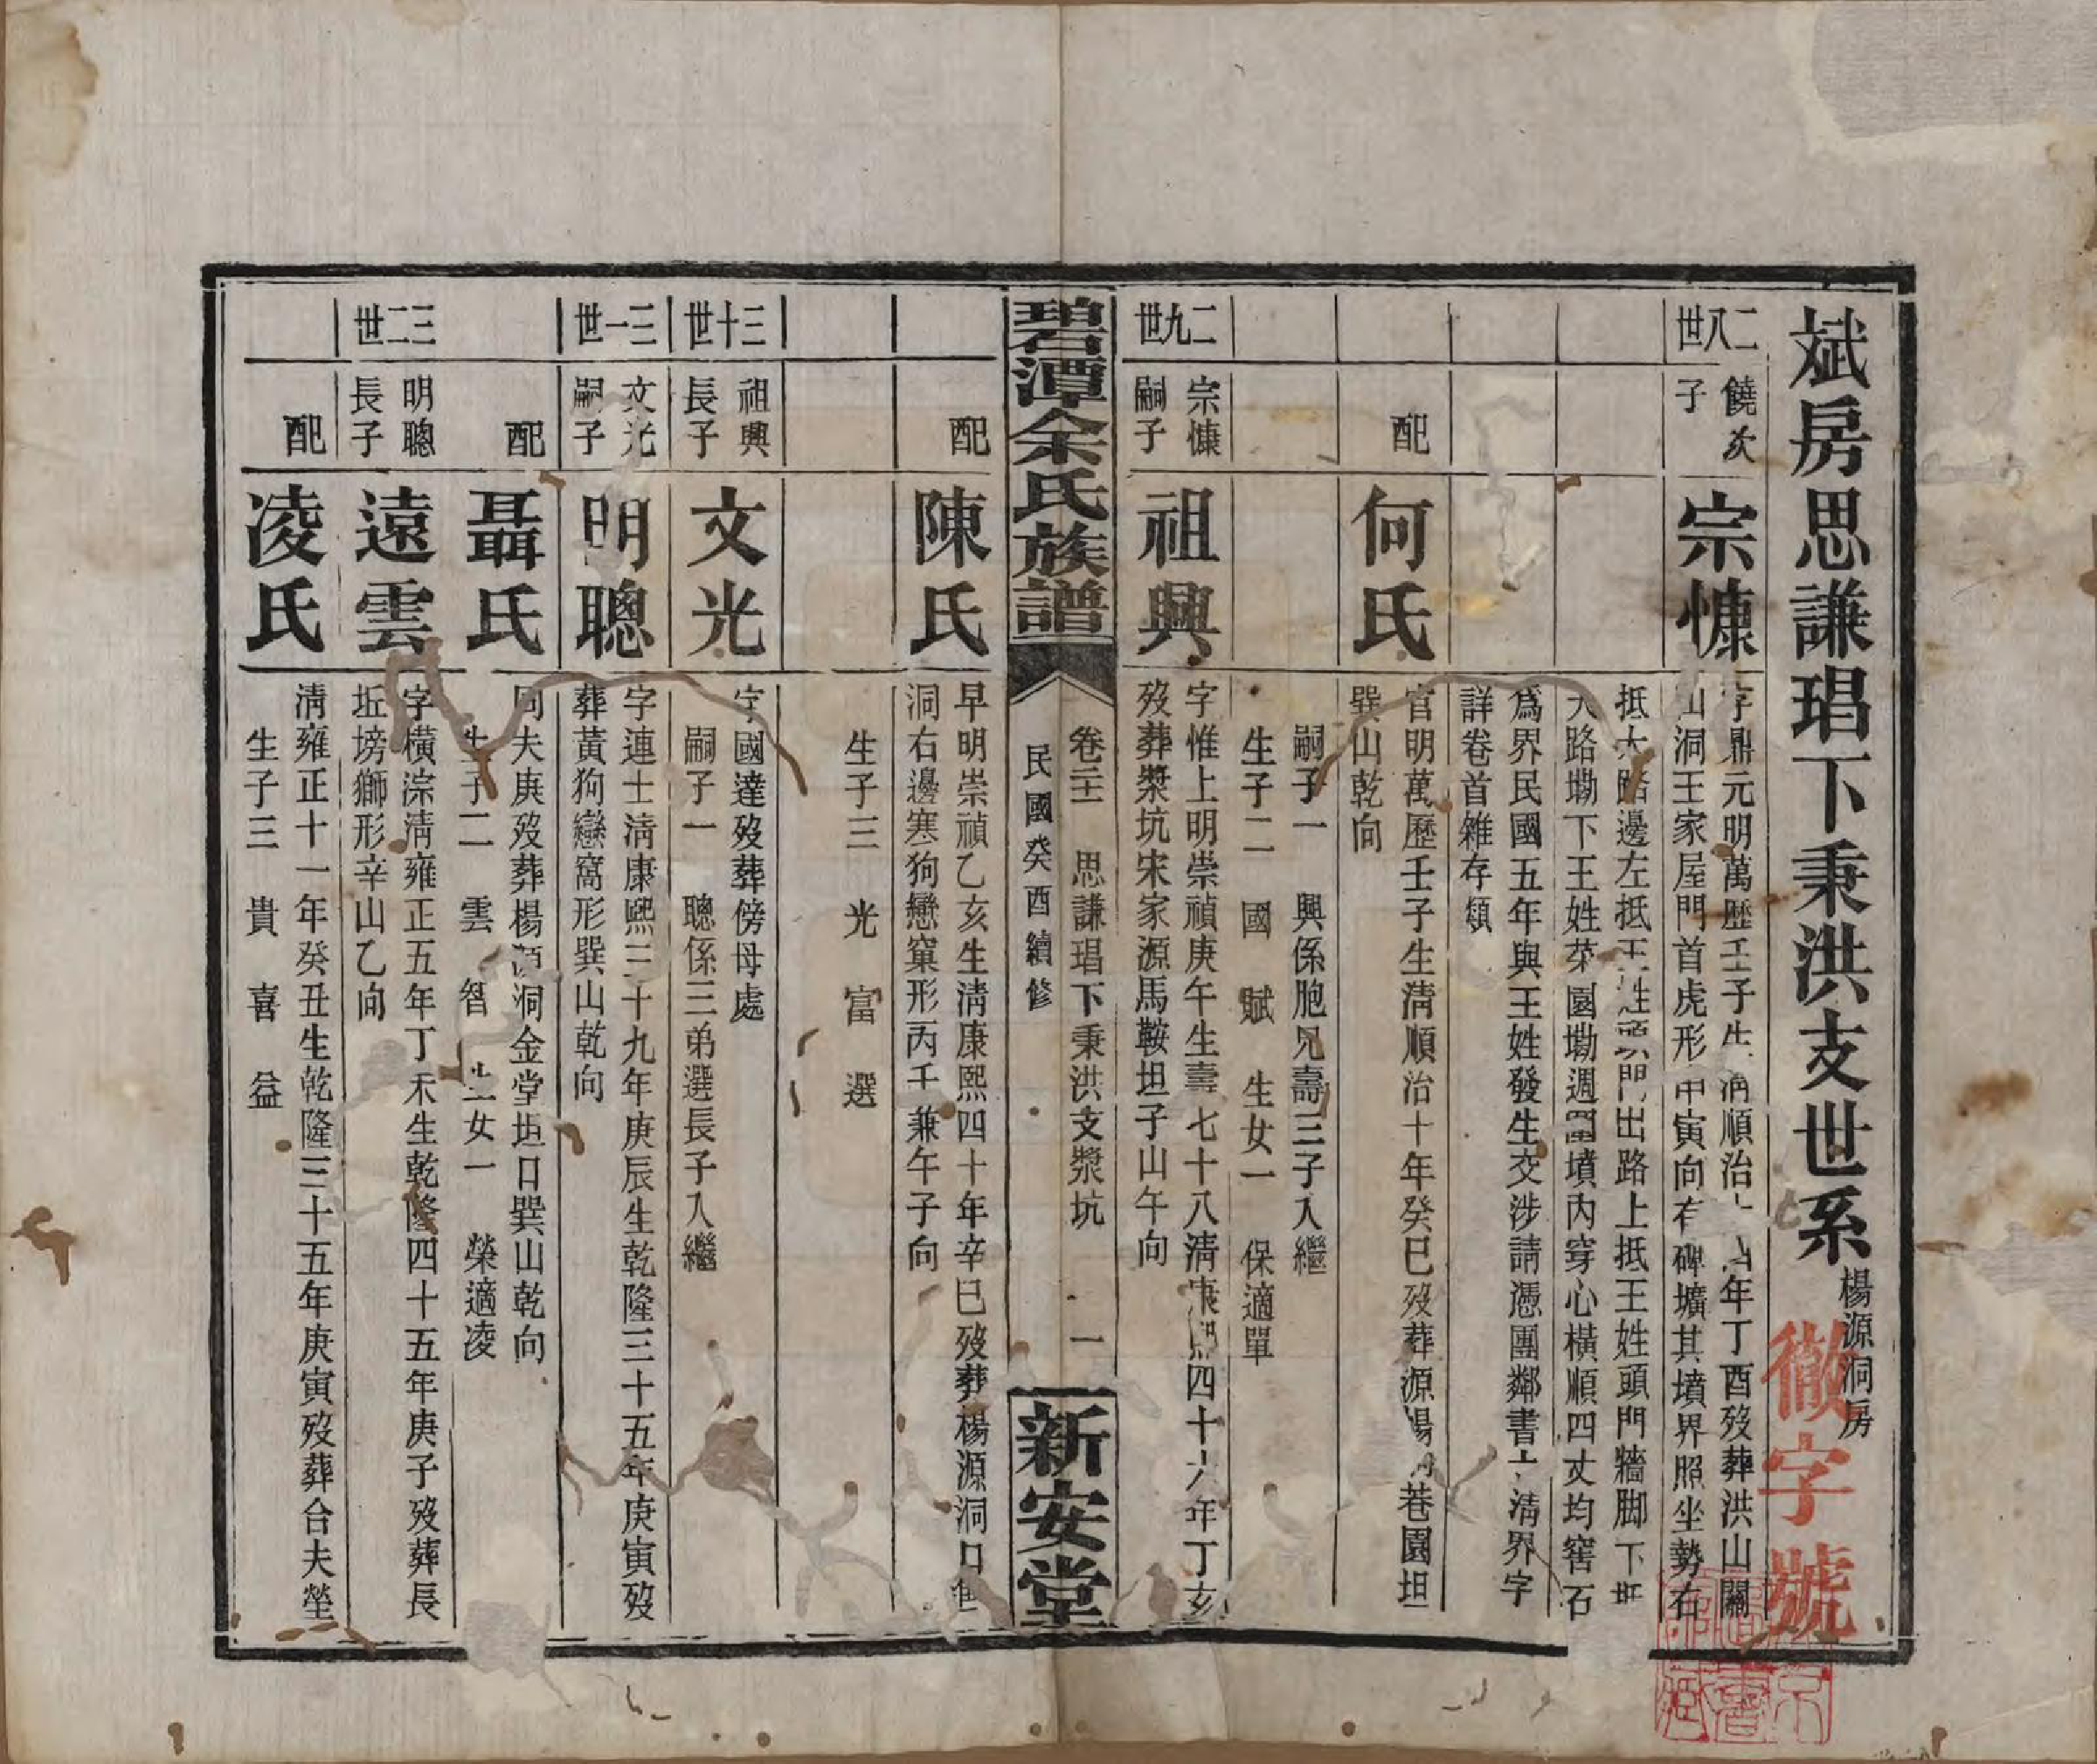 斌房思謙琩下秉洪支世系楊源洞房
徽字號
二八世
饒次子
宗慷
字鼎元明萬歷壬子生清順治十四年丁酉歿葬洪山關
山洞王家屋門首虎形甲寅向有碑壙其墳界照坐勢右
抵大路邊左抵王姓頭門出路上抵王姓頭門牆脚下抵
大路塝下王姓菜園塝週圍墳內穿心橫順四丈均窖石
爲界民國五年與王姓發生交涉請憑團鄰書立清界字
詳卷首雜存類
配
何氏
官明萬歷壬子生清順治十年癸巳歿葬源楊 巷園坦
巽山乾向
嗣子一 興係胞兄壽三子入繼
生子二 國 賦 生女一 保適單
二九世
宗慷嗣子
祖興
字惟上明崇禎庚午生壽七十八清康熙四十六年丁亥
歿葬漿坑宋家源馬鞍坦子山午向
碧潭余氏族譜
卷二十一 思謙琩下秉洪支漿坑 一
民國癸酉續修
新安堂
配
陳氏
早明崇禎乙亥生清康熙四十年辛巳歿葬楊源洞口
洞右邊寒狗戀窠形丙壬兼午子向
生子三 光 富 選
三十世
祖興長子
文光
字國達歿葬傍母處
嗣子一 聰係三弟選長子入繼
三一世
文光嗣子
明聰
字連士清康熙三十九年庚辰生乾隆三十五年庚寅歿
葬黃狗戀窩形巽山乾向
配
聶氏
同夫庚歿葬楊源洞金堂坦口巽山乾向
生子二 雲 智 生女一 榮適凌
三二世
明聰長子
遠雲
字橫淙清雍正五年丁未生乾隆四十五年庚子歿葬長
坵塝獅形辛山乙向
配
凌氏
清雍正十一年癸丑生乾隆三十五年庚寅歿葬合夫塋
生子三 貴 喜 益